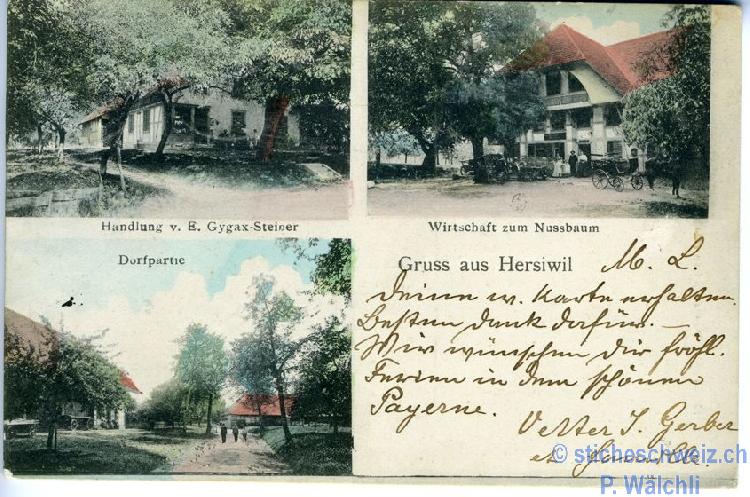 Handlung v. E. Gygax-Steiner
Wirtschaft zum Nussbaum
Dorfpartie
Gruss aus Hersiwil
M. L.
Deine w. Karte erhalten.
Besten Dank dafür. –
Wir wünschen Dir fröhl.
Ferien in dem schönen
Payerne.
Vetter J. Gerber
© sticheschweiz.ch
P. Wälchli